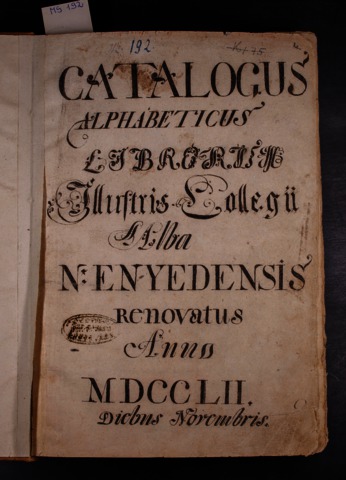 MS 192
192
CATALOGUS
ALPHABETICUS
LIBRORUM
Illustris Collegii
Alba
N: ENYEDENSIS
RENOVATUS
Anno
MDCCLII.
Diebus Novembris.